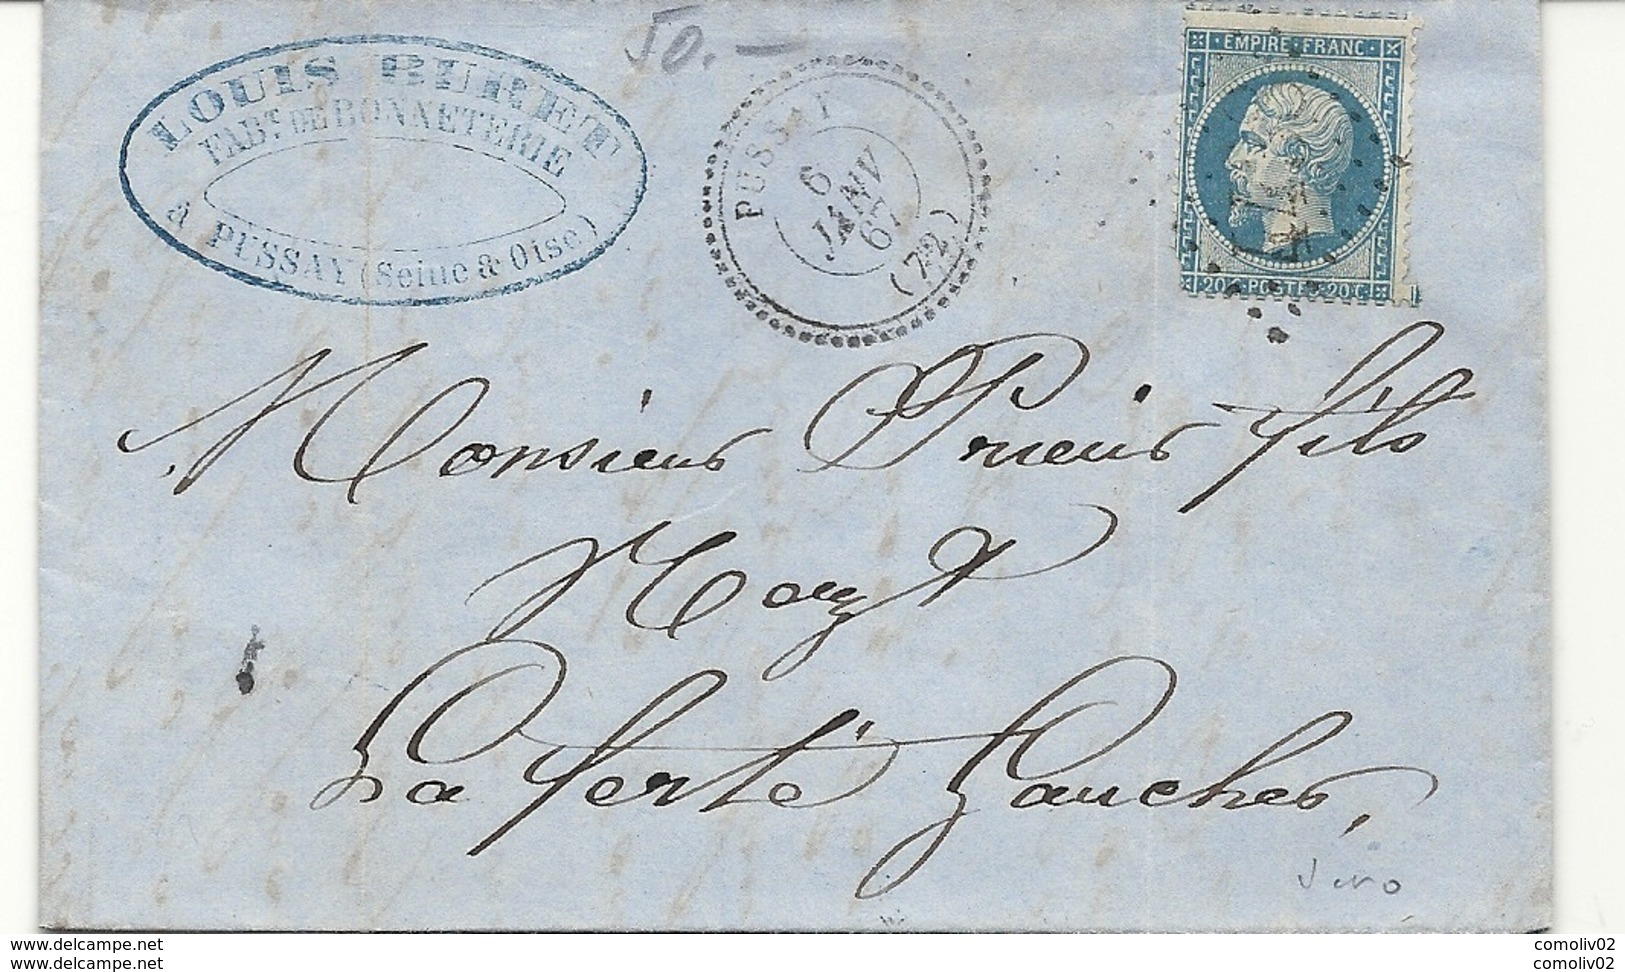 50.—
LOUIS BURET
FABT. DE BONNETERIE
A PUSSAY (Seine & Oise)
PUSSAY
6
JANV
67
(72)
EMPIRE FRANC
20 C POSTES 20 C
Monsieur Prieur fils
Négt
La ferté Gaucher,
www.delcampe.net
www.delcampe.net
comoliv02
comoliv02